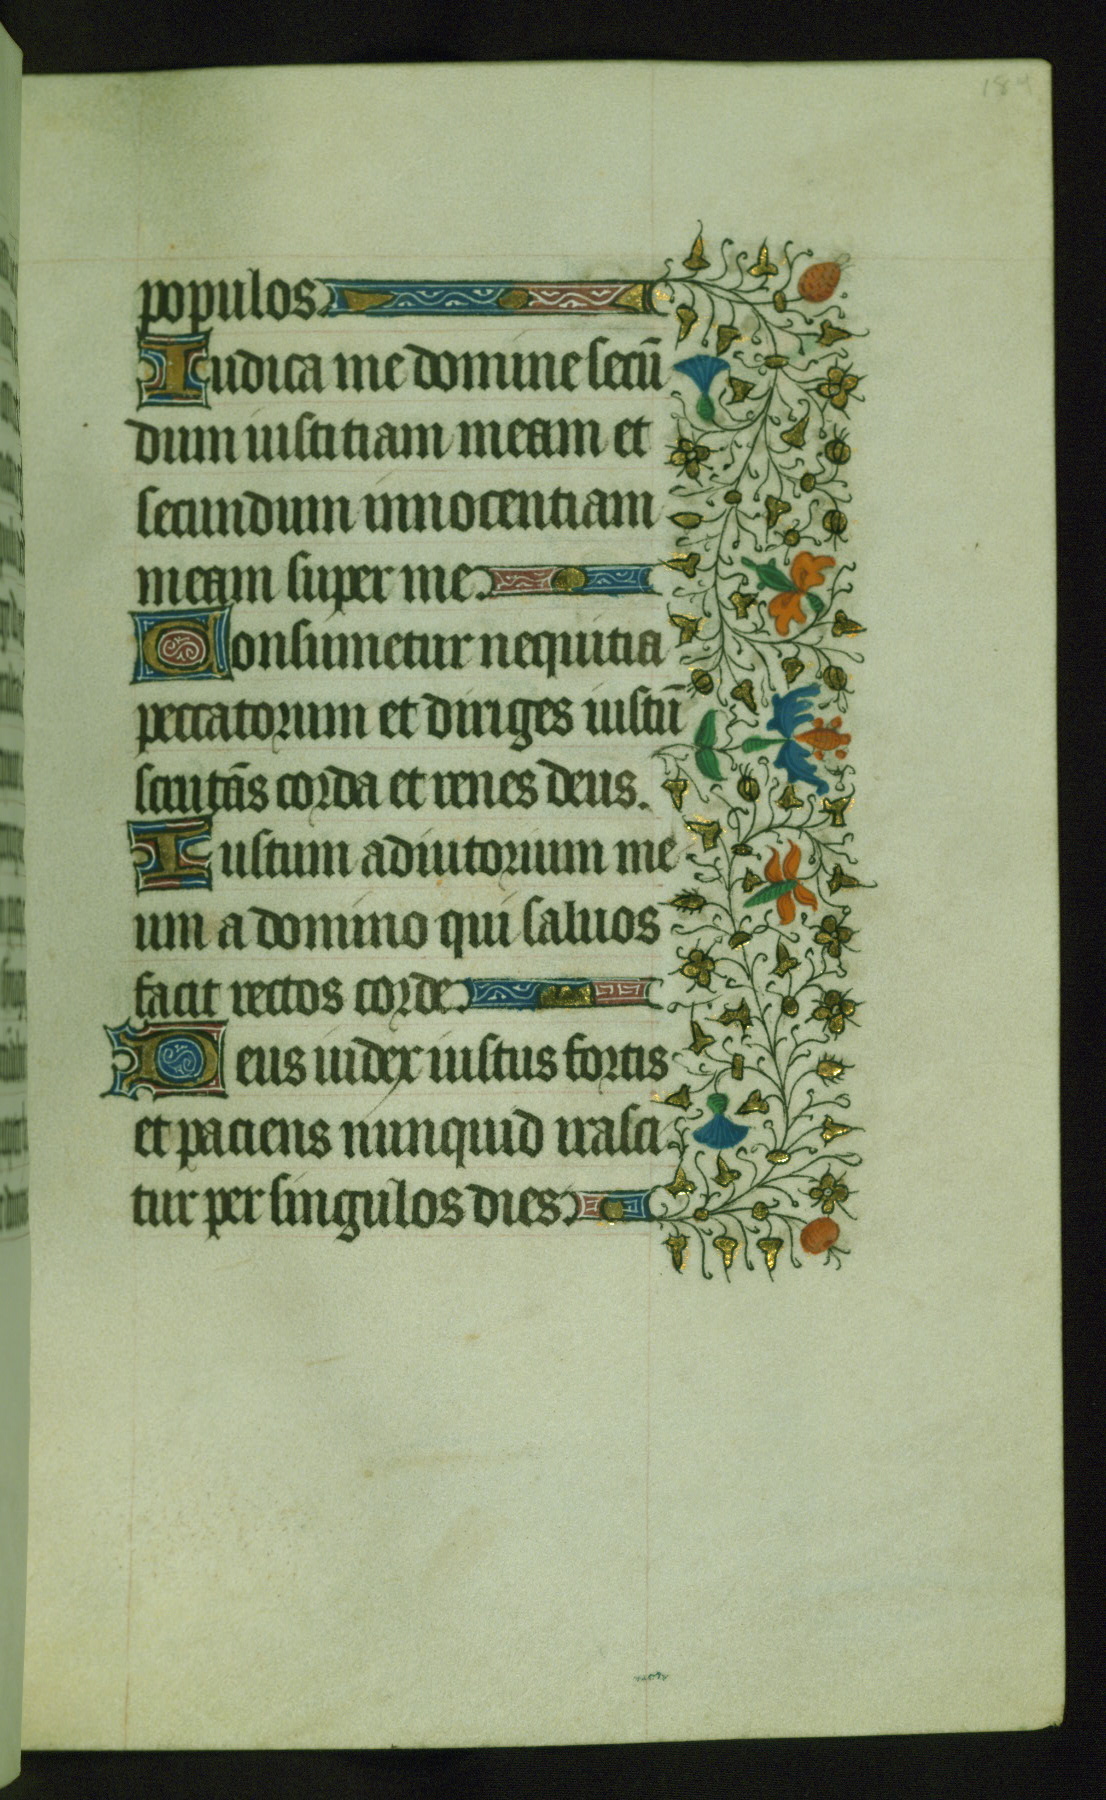 184
populos
Iudica me domine secū
dum iusticiam meam et
secundum innocentiam
meam super me
Consumetur nequitia
peccatorum et diriges iustū
scrutās corda et renes deus.
Iustum adiutorium me
um a domino qui saluos
facit rectos corde
Deus iudex iustus fortis
et paciens nunquid irasci
tur per singulos dies